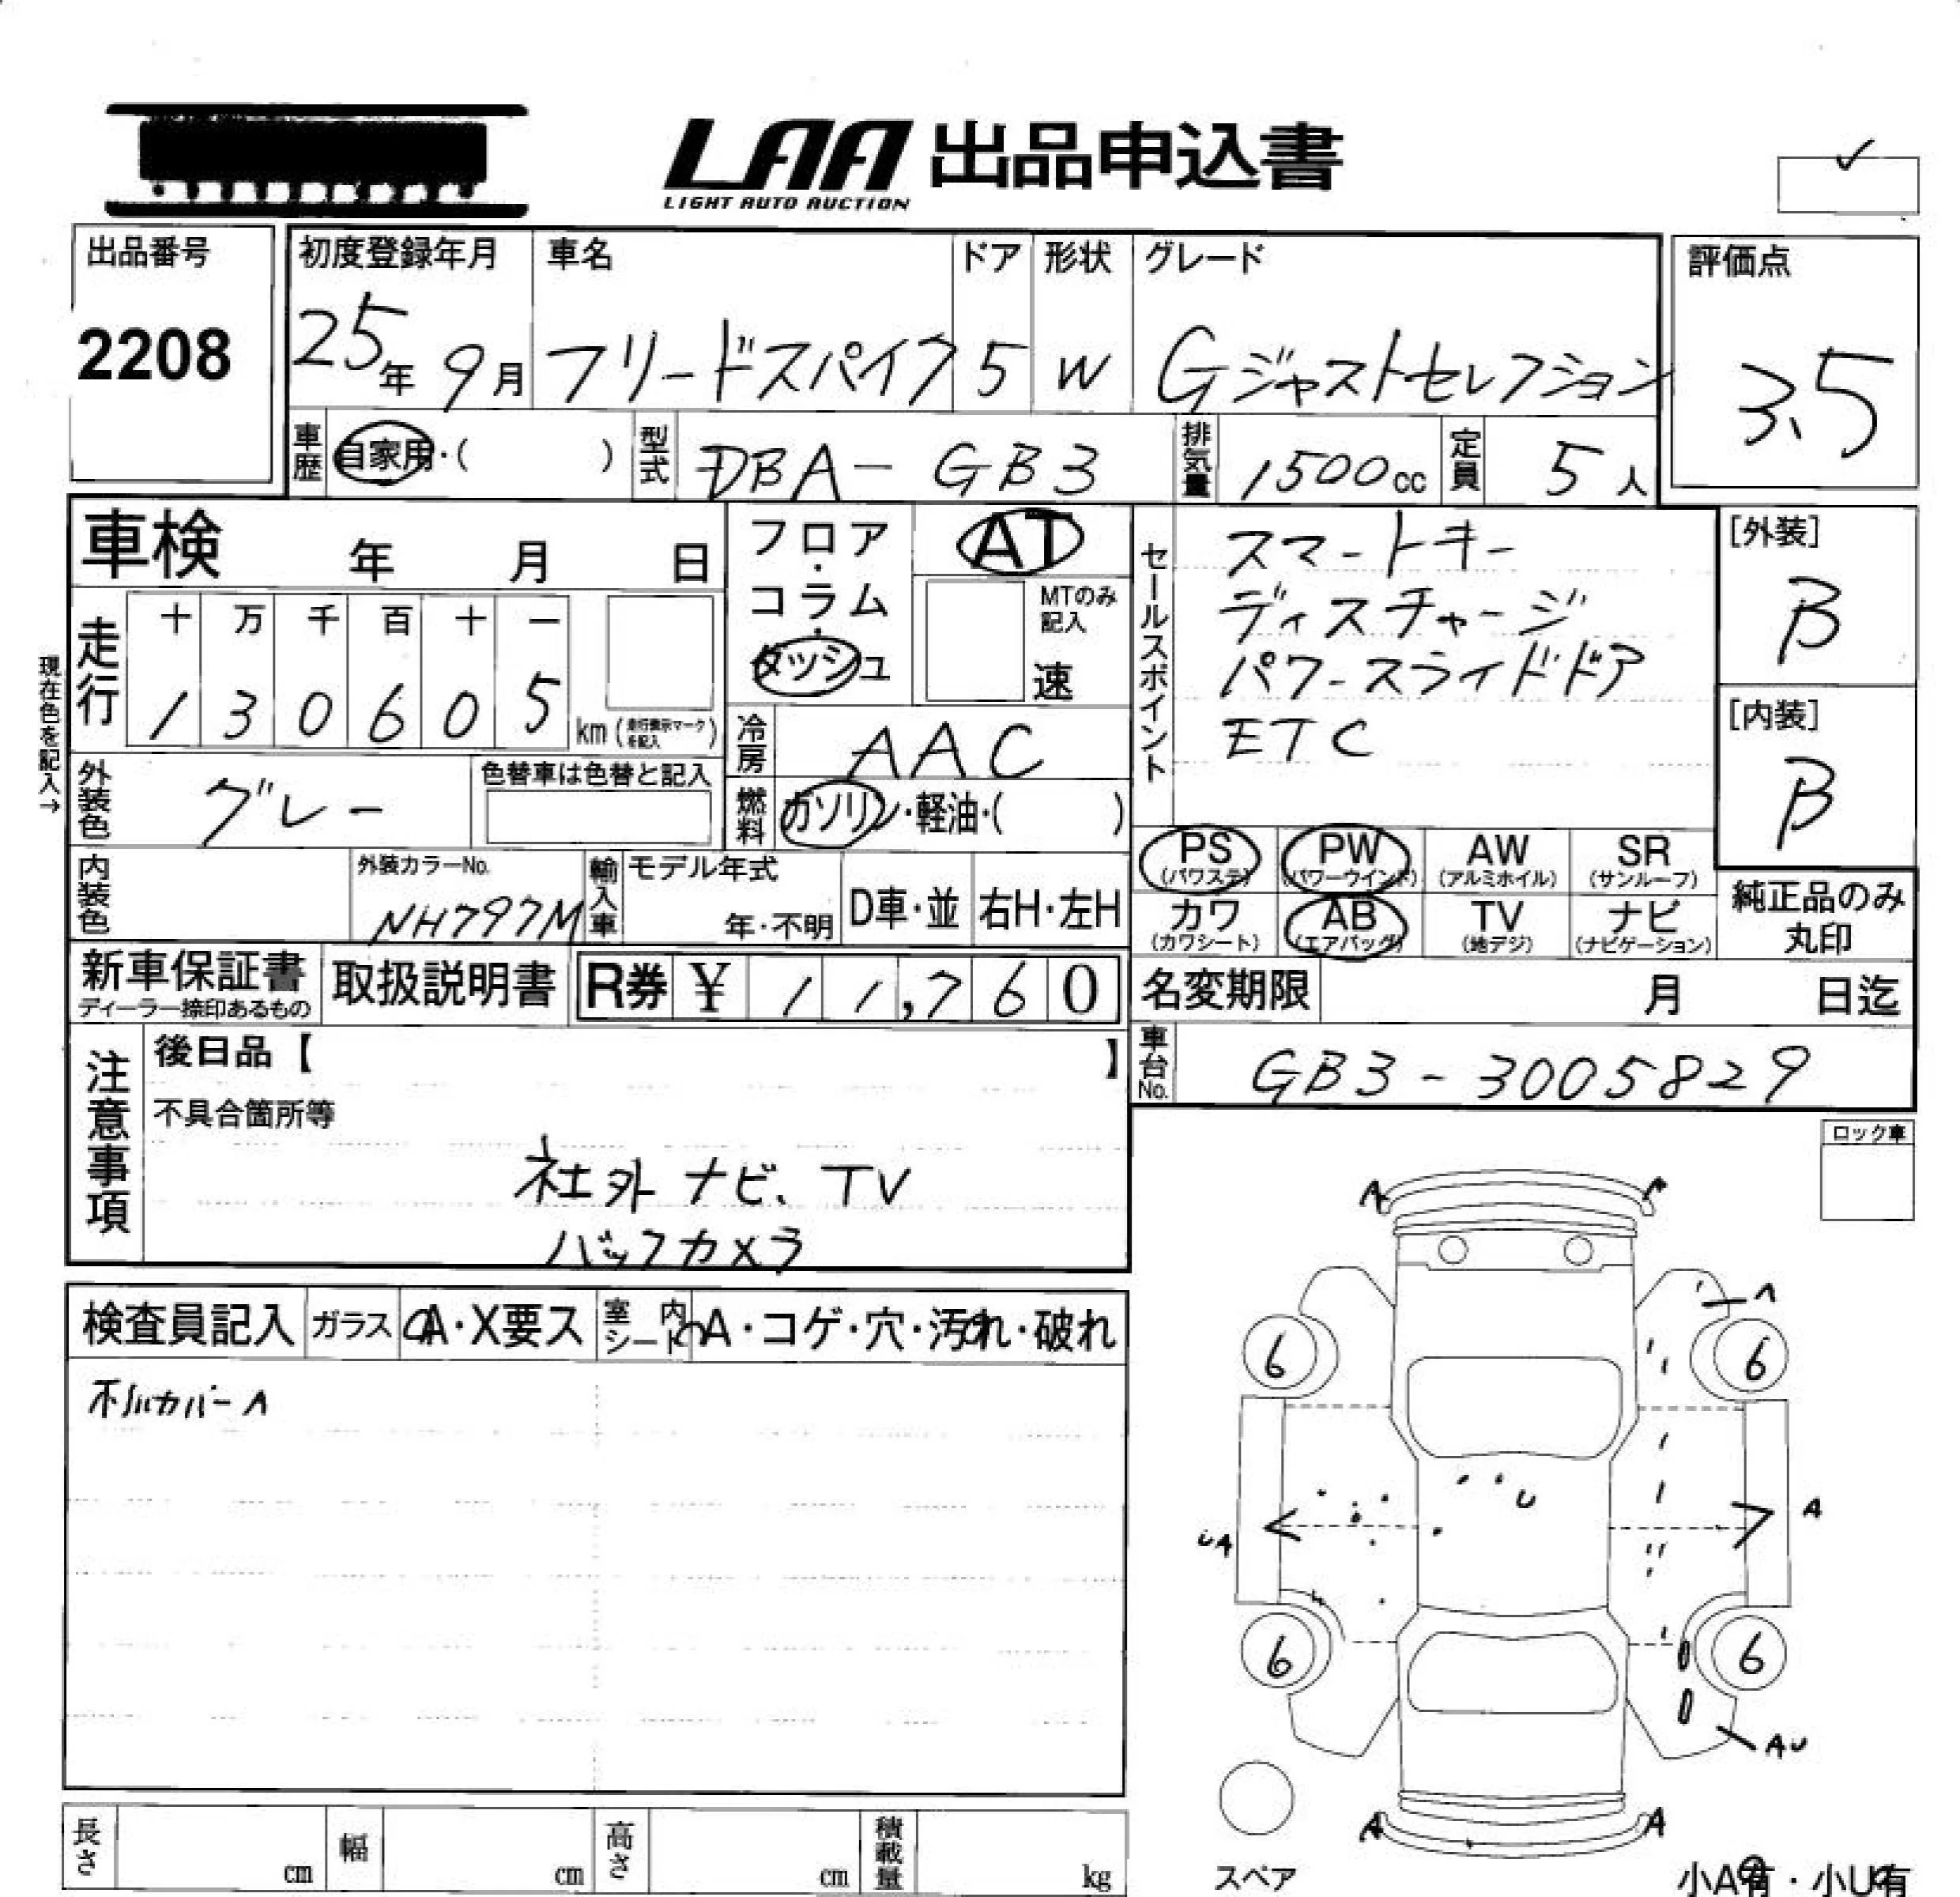 LAA 出品申込書
LIGHT AUTO AUCTION
出品番号
2208
初度登録年月
25年 9月
車名
フリードスパイク
ドア
5
形状
W
グレード
Gジャストセレクション
評価点
3.5
車歴 自家用・( )
型式 DBA-GB3
排気量 1500cc
定員 5人
車検 年 月 日
フロア・コラム・ダッシュ
AT
MTのみ記入
速
セールスポイント
スマートキー
ディスチャージ
パワースライドドア
ETC
[外装]
B
[内装]
B
現在色を記入→
走行
十 万 千 百 十 一
1 3 0 6 0 5 km (走行表示マークを記入)
冷房 AAC
外装色 グレー
色替車は色替と記入
燃料 ガソリン・軽油・( )
PS (パワステ) PW (パワーウインド) AW (アルミホイル) SR (サンルーフ)
カワ (カワシート) AB (エアバッグ) TV (地デジ) ナビ (ナビゲーション)
純正品のみ丸印
内装色
外装カラーNo.
NH797M
輸入車
モデル年式
年・不明
D車・並
右H・左H
新車保証書
ディーラー捺印あるもの
取扱説明書
R券 ¥ 11,760
名変期限 月 日迄
車台No. GB3-3005829
注意事項
後日品【 】
不具合箇所等
社外ナビ、TV
バックカメラ
ロック車
検査員記入
ガラス A・X要ス
室内シート A・コゲ・穴・汚れ・破れ
ホイルカバーA
A A
A
6 6
U
UA A
6 6
AU
A A
スペア
小A有・小U有
長さ cm
幅 cm
高さ cm
積載量 kg